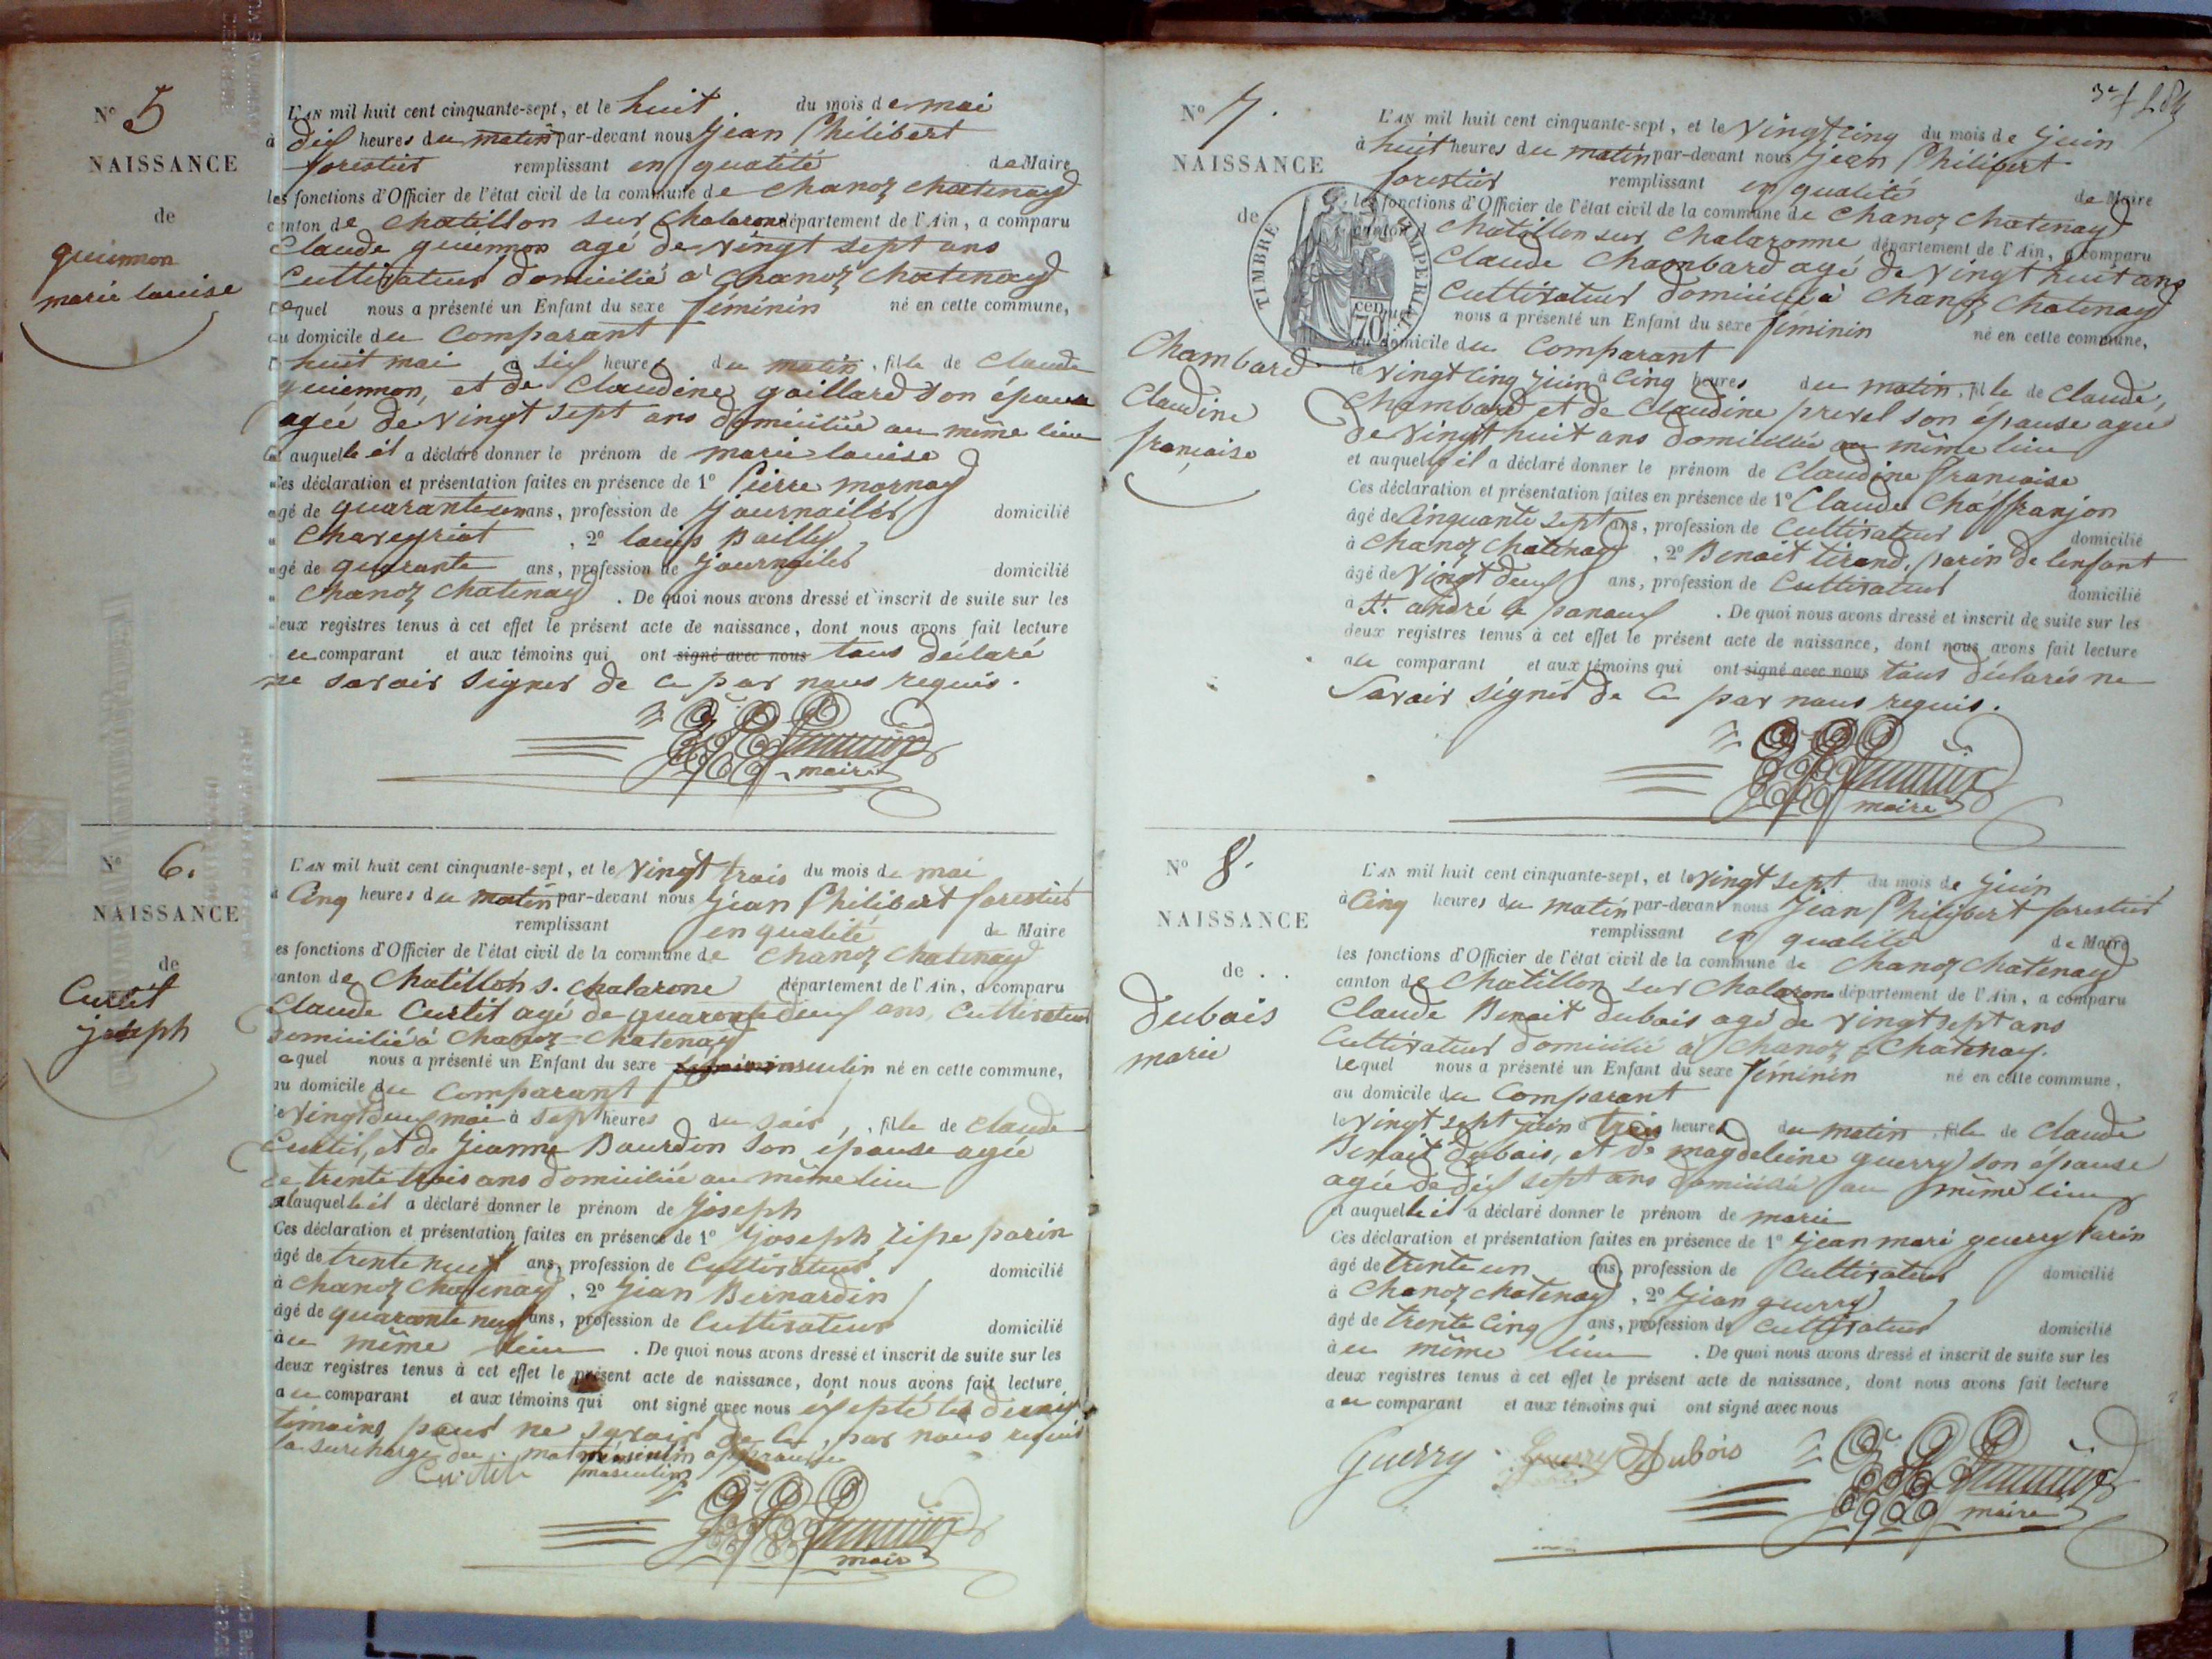 N° 5
NAISSANCE
de
guiennon
marie louise
L'AN mil huit cent cinquante-sept, et le huit du mois de mai
à dix heures du matin par-devant nous Jean Philibert
forestier remplissant en qualité de Maire
les fonctions d'Officier de l'état civil de la commune de chanoz chatenay
canton de chatillon sur chalarone département de l'Ain, a comparu
Claude guiennon agé de vingt sept ans
Cultivateur domicilié à chanoz chatenay
lequel nous a présenté un Enfant du sexe féminin né en cette commune,
au domicile du comparant
huit mai à six heures du matin, fille de Claude
guiennon, et de Claudine gaillard son épouse
agée de vingt sept ans domiciliée au même lieu
auquelle il a déclaré donner le prénom de marie louise
Ces déclaration et présentation faites en présence de 1° Pierre mornay
agé de quarante un ans, profession de journalier domicilié
Chaveyriat, 2° louis Bailly
agé de quarante ans, profession de journalier domicilié
Chanoz chatenay. De quoi nous avons dressé et inscrit de suite sur les
deux registres tenus à cet effet le présent acte de naissance, dont nous avons fait lecture
au comparant et aux témoins qui ont signé avec nous tous déclaré
ne savoir signer de ce par nous requis.
maire
N° 6.
NAISSANCE
de
Curtit
joseph
L'AN mil huit cent cinquante-sept, et le vingt trois du mois de mai
à cinq heures du matin par-devant nous Jean Philibert forestier
remplissant en qualité de Maire
les fonctions d'Officier de l'état civil de la commune de Chanoz chatenay
canton de Chatillon s. chalarone département de l'Ain, a comparu
Claude Curtit agé de quarante deux ans, Cultivateur
domicilié à Chanoz=Chatenay
lequel nous a présenté un Enfant du sexe masculin né en cette commune,
au domicile du Comparant
le vingt deux mai à sept heures du soir, fille de Claude
Curtit, et de Jeanne Bourdon son épouse agée
de trente trois ans domiciliée au même lieu
auquelle il a déclaré donner le prénom de Joseph
Ces déclaration et présentation faites en présence de 1° Joseph ripe parin
âgé de trente neuf ans, profession de Cultivateur domicilié
à Chanoz Chatenay, 2° Jean Bernardin
âgé de quarante neuf ans, profession de Cultivateur domicilié
au même lieu. De quoi nous avons dressé et inscrit de suite sur les
deux registres tenus à cet effet le présent acte de naissance, dont nous avons fait lecture
au comparant et aux témoins qui ont signé avec nous
témoins pour ne savoir de ce, par nous requis
la surcharge du mot masculin approuvée
Curtit masculin
maire
N° 7.
NAISSANCE
de
TIMBRE IMPERIAL
70 cen
Chambard
Claudine
françoise
L'AN mil huit cent cinquante-sept, et le vingt cinq du mois de Juin
à huit heures du matin par-devant nous Jean Philibert
forestier remplissant en qualité de Maire
les fonctions d'Officier de l'état civil de la commune de chanoz chatenay
canton de Chatillon sur Chalaronne département de l'Ain, a comparu
Claude Chambard agé de vingt huit ans
Cultivateur domicilié à Chanoz Chatenay
nous a présenté un Enfant du sexe féminin né en cette commune,
au domicile du Comparant
le vingt cinq juin à cinq heures du matin, fille de Claude,
Chambard et de Claudine prevel son épouse agée
de vingt huit ans domiciliée au même lieu
et auquelle il a déclaré donner le prénom de Claudine françoise
Ces déclaration et présentation faites en présence de 1° Claude Chaffranjon
âgé de cinquante sept ans, profession de Cultivateur domicilié
à Chanoz Chatenay, 2° Benoit tirand, parin de lenfant
âgé de vingt deux ans, profession de Cultivateur domicilié
à St. andré le panoux. De quoi nous avons dressé et inscrit de suite sur les
deux registres tenus à cet effet le présent acte de naissance, dont nous avons fait lecture
au comparant et aux témoins qui ont signé avec nous tous déclarés ne
savoir signer de ce par nous requis.
maire
N° 8.
NAISSANCE
de
dubois
marie
L'AN mil huit cent cinquante-sept, et le vingt sept du mois de juin
à Cinq heures du matin par-devant nous Jean Philibert forestier
remplissant en qualité de Maire
les fonctions d'Officier de l'état civil de la commune de Chanoz chatenay
canton de Chatillon sur Chalarone département de l'Ain, a comparu
Claude Benoit dubois agé de vingt sept ans
Cultivateur domicilié à Chanoz Chatenay.
Lequel nous a présenté un Enfant du sexe féminin né en cette commune,
au domicile du Comparant
le vingt sept juin à trois heures du matin, fille de Claude
Benoit dubois, et de magdeleine guerry son épouse
agée de dix sept ans domiciliée au même lieu
et auquelle il a déclaré donner le prénom de marie
Ces déclaration et présentation faites en présence de 1° Jean mari guerry Parin
âgé de trente un ans, profession de Cultivateur domicilié
à Chanoz chatenay, 2° Jean guerry
âgé de trente cinq ans, profession de Cultivateur domicilié
au même lieu. De quoi nous avons dressé et inscrit de suite sur les
deux registres tenus à cet effet le présent acte de naissance, dont nous avons fait lecture
au comparant et aux témoins qui ont signé avec nous
Guerry Guerry Dubois
maire